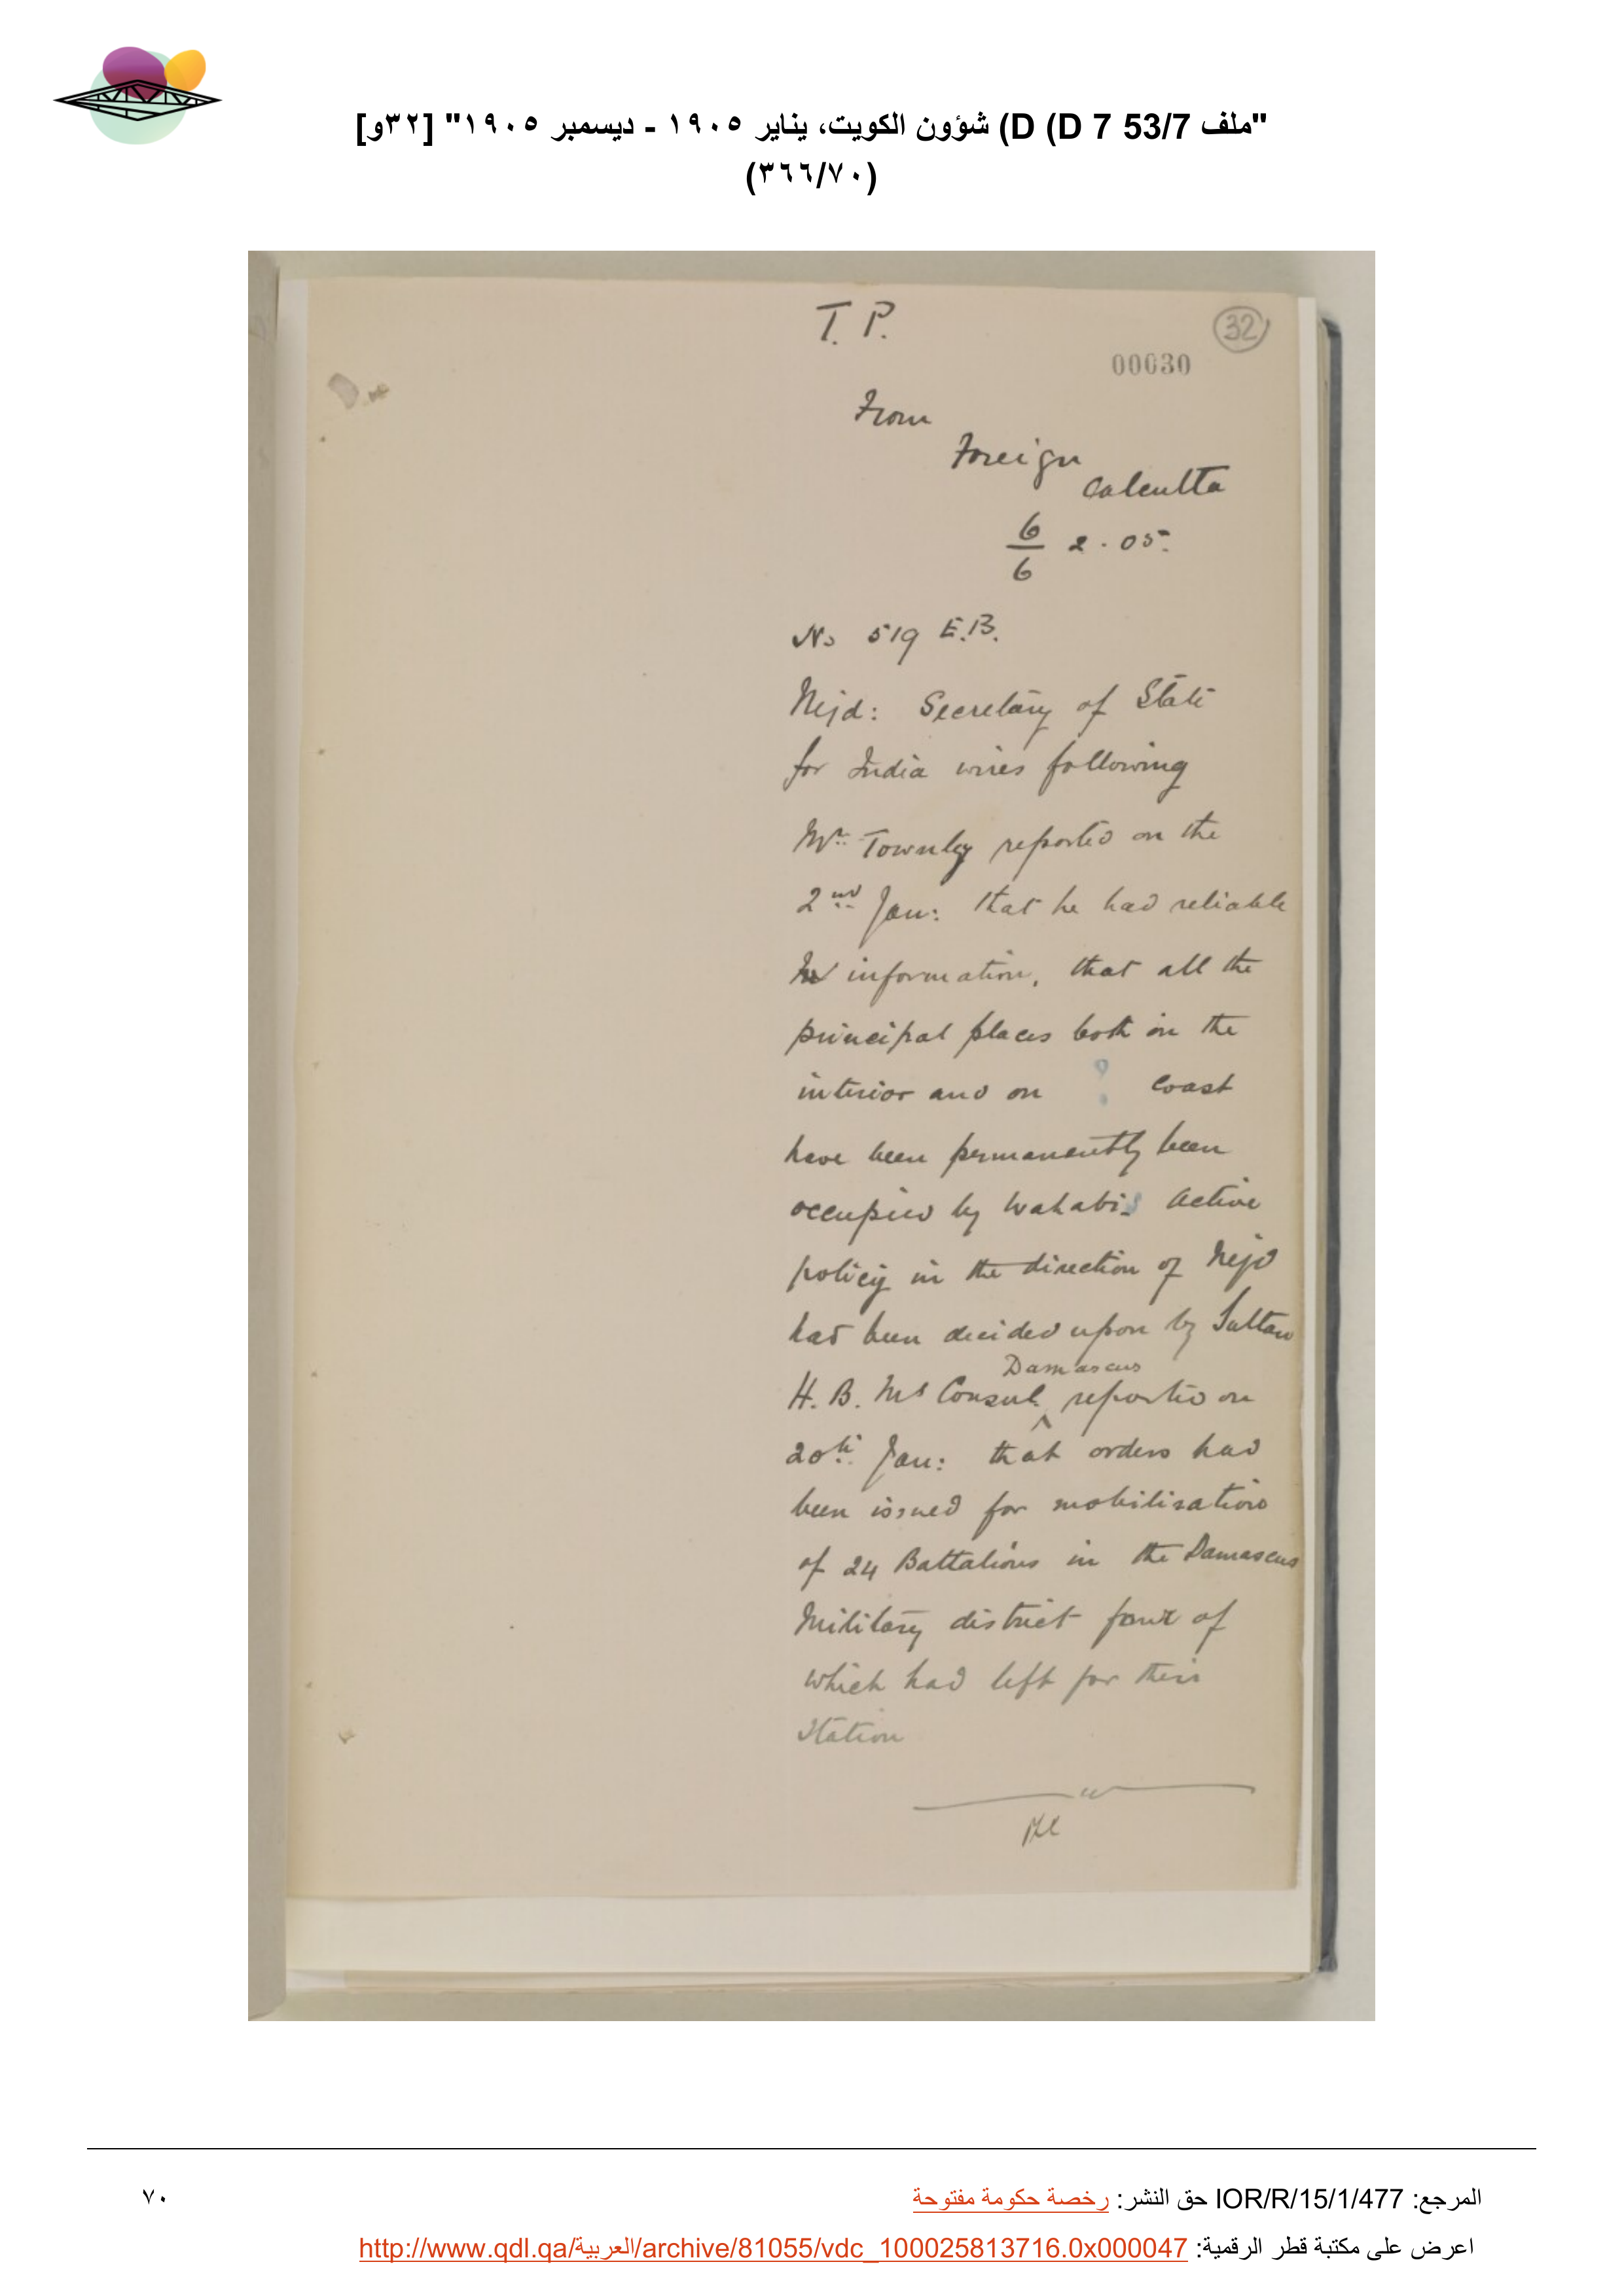 "ملف 53/7 D 7 D) D) شؤون الكويت، يناير ١٩٠٥ - ديسمبر ١٩٠٥" [٣٢و]
(٣٦٦/٧٠)
T. P.
32
00030
From
Foreign
Calcutta
6/6 2 . 05.
No 519 E.B.
Nejd: Secretary of State
for India wires following
Mr. Townley reported on the
2nd Jan: that he had reliable
information, that all the
principal places both in the
interior and on ? coast
have been permanently been
occupied by Wahabis Active
policy in the direction of Nejd
had been decided upon by Sultan
Damascus
H. B. Ms Consul ^ reported on
20th Jan: that orders had
been issued for mobilisation
of 24 Battalions in the Damascus
Military district four of
which had left for their
Station
المرجع: IOR/R/15/1/477 حق النشر: رخصة حكومة مفتوحة
٧٠
اعرض على مكتبة قطر الرقمية: http://www.qdl.qa/العربية/archive/81055/vdc_100025813716.0x000047